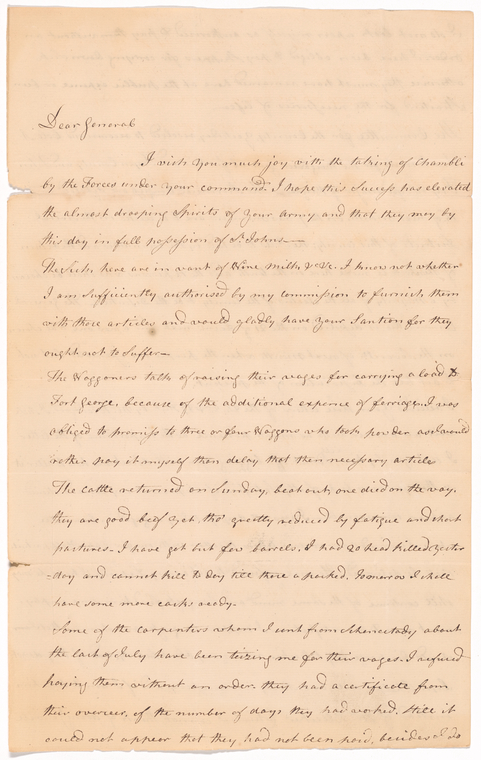 Dear General
I wish you much joy with the taking of Chambli
by the Forces under your command. I hope this Success has elevated
the almost drooping Spirits of your Army and that they may by
this day in full possession of St. Johns—
The Sick here are in want of Wine Milk & &c. I know not whether
I am Sufficiently authorised by my commission to furnish them
with those articles and would gladly have your Santion for they
ought not to Suffer—
The Waggoners talk of raising their wages for carrying a load to
Fort George, because of the additional expence of ferriage. I was
obliged to promiss to three or four Waggons who took powder as I would
rather pay it myself then delay that then necessary article
The cattle returned on Sunday, beat out, one died on the way.
they are good beef yet, tho' greatly reduced by fatigue and short
pastures. I have got but few barrels. I had 20 head killed yester
-day and cannot kill to day till these a packed. Tomorrow I shall
have some more casks ready.
Some of the carpenters whom I sent from Schenectady about
the last of July have been teizing me for their wages. I refused
paying them without an order. they had a certificate from
their overseer, of the number of days they had worked. Still it
could not appear that they had not been paid, besides I do